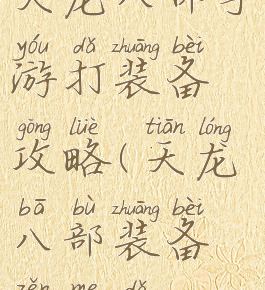 天龙八部手
yóu dǎ zhuāng bèi
游打装备
gōng lüè tiān lóng
攻略(天龙
bā bù zhuāng bèi
八部装备
zěn me dǎ